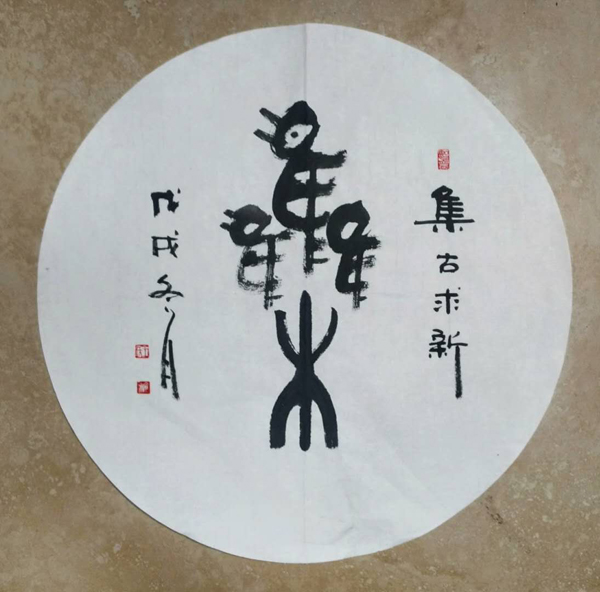 集古求新
雧
戊戌冬月